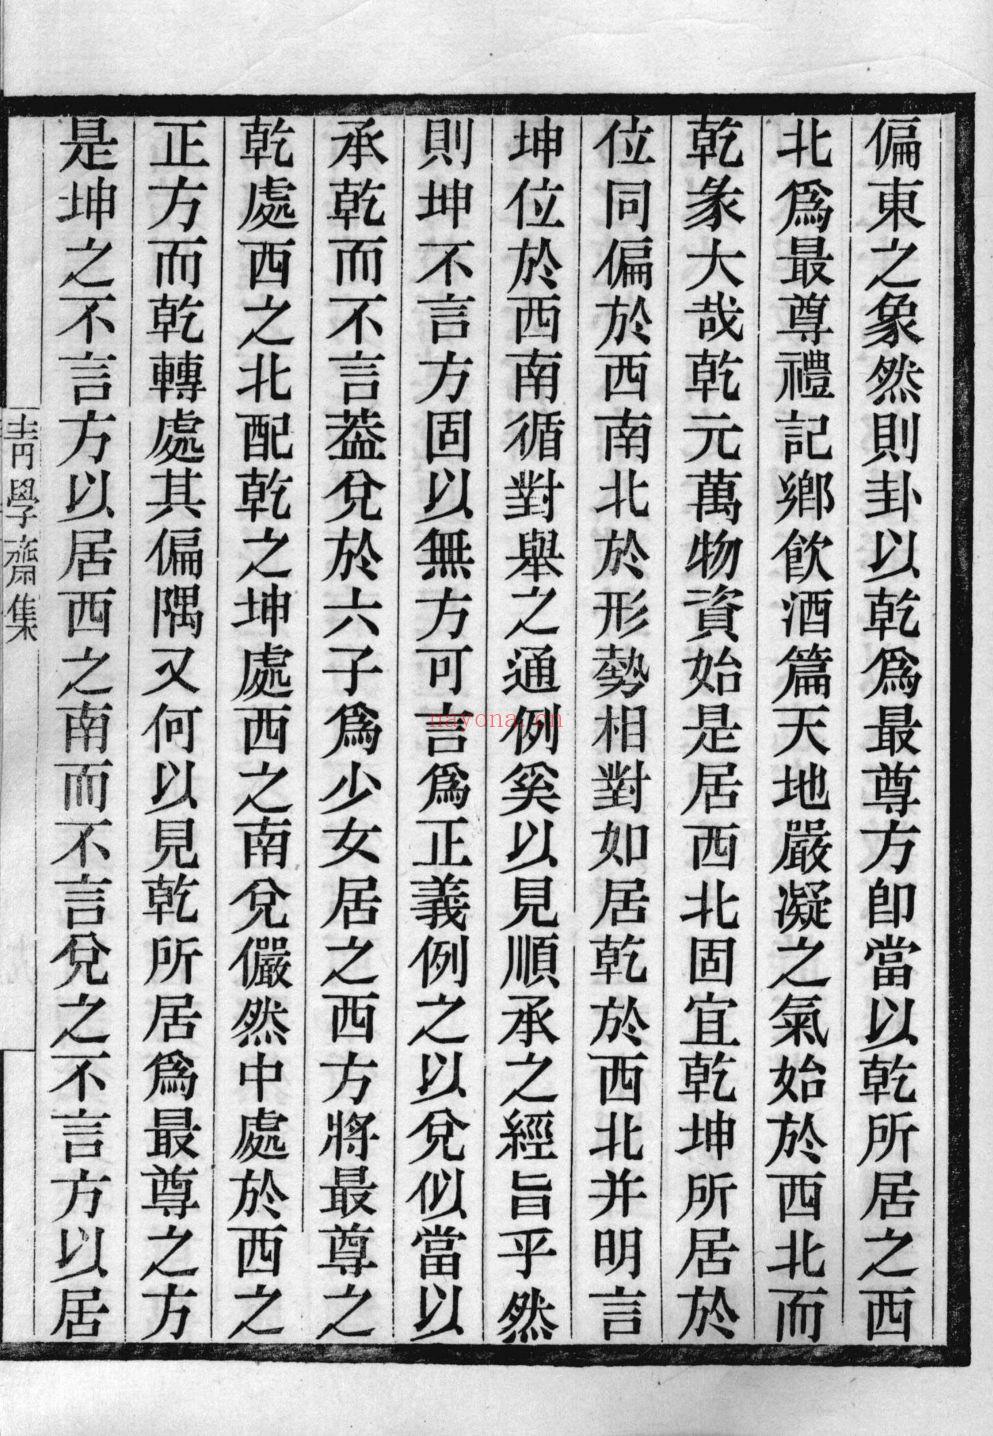 偏東之象然則卦以乾爲最尊方卽當以乾所居之西
北爲最尊禮記鄉飮酒篇天地嚴凝之氣始於西北而
乾彖大哉乾元萬物資始是居西北固宜乾坤所居於
位同偏於西南北於形勢相對如居乾於西北并明言
坤位於西南循對舉之通例奚以見順承之經旨乎然
則坤不言方固以無方可言爲正義例之以兌似當以
承乾而不言葢兌於六子爲少女居之西方將最尊之
乾處西之北配乾之坤處西之南兌儼然中處於西之
正方而乾轉處其偏隅又何以見乾所居爲最尊之方
是坤之不言方以居西之南而不言兌之不言方以居
青學齋集
nayona.cn